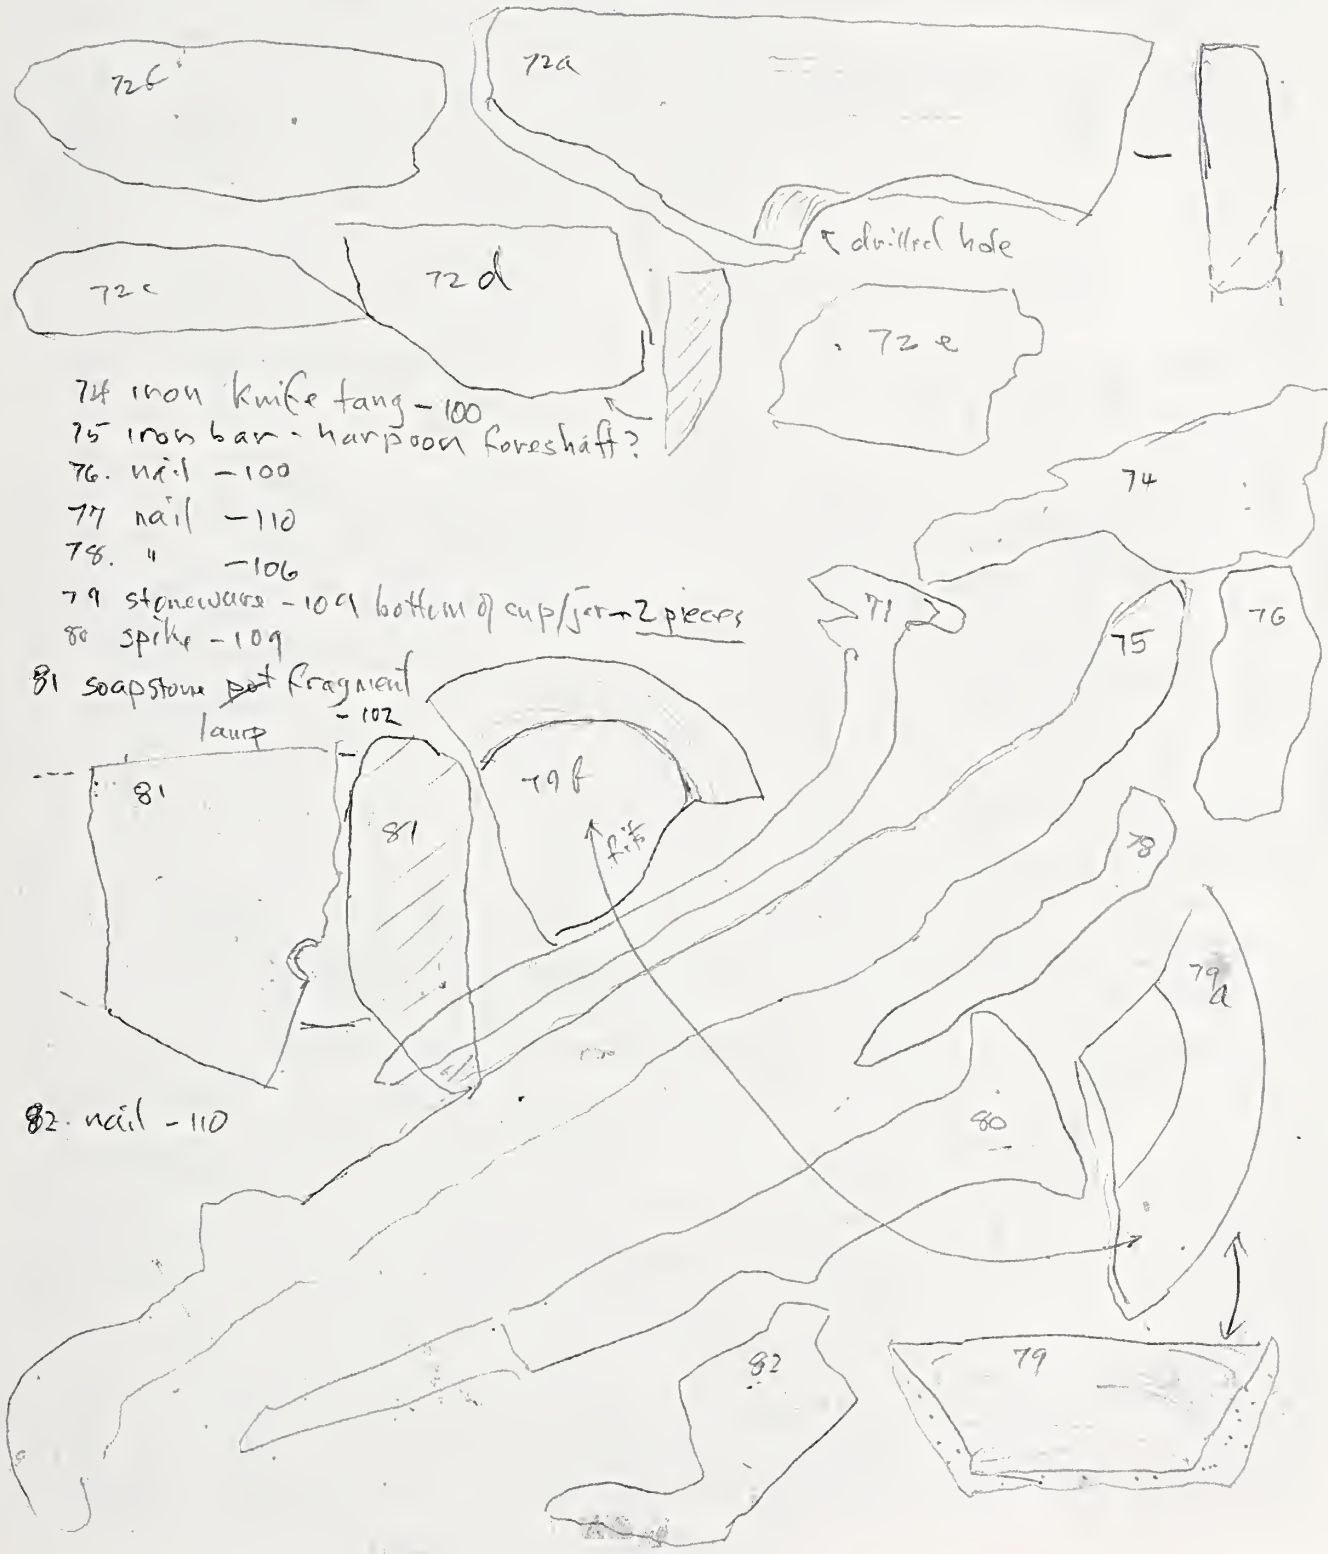 72b
72a
drilled hole
72c
72d
72e
74 iron knife tang - 100
75 iron bar - harpoon foreshaft?
76. nail - 100
77 nail - 110
78. " - 106
79 stoneware - 109 bottom of cup/jar - 2 pieces
80 spike - 109
81 soapstone pot fragment
lamp - 102
74
71
75
76
81
81
79b
fits
78
79a
82. nail - 110
80
82
79